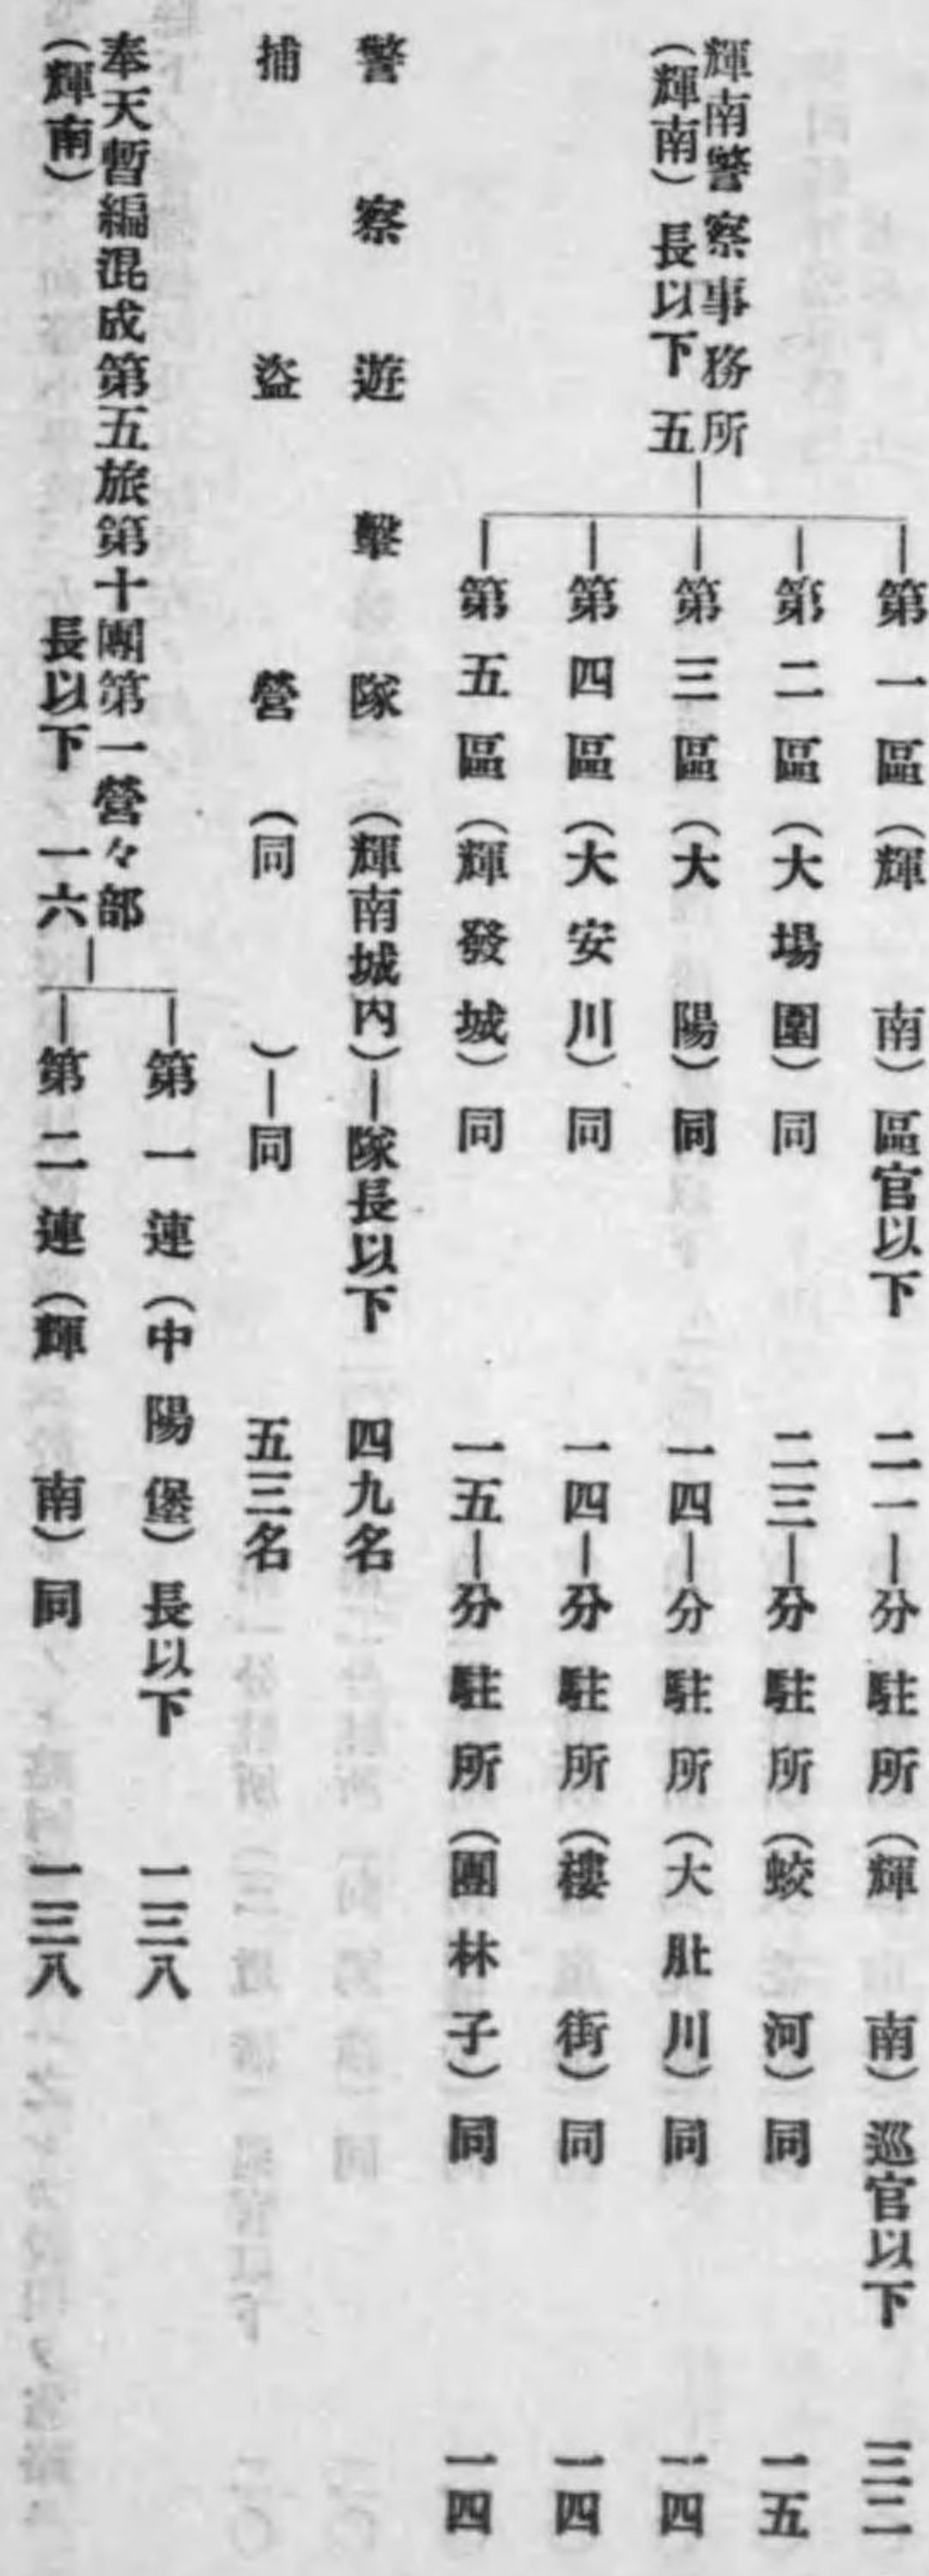 輝南警察事務所
(輝南)長以下 五
第一區(輝南)區官以下 二一―分駐所(輝南)巡官以下 三二
第二區(大場園)同 二三―分駐所(蛟河)同 一五
第三區(大陽)同 一四―分駐所(大肚川)同 一四
第四區(大安川)同 一四―分駐所(樓街)同 一四
第五區(輝發城)同 一五―分駐所(團林子)同 一四
警察遊擊隊(輝南城內)―隊長以下 四九名
捕盜營(同)―同 五三名
奉天暫編混成第五旅第十團第一營々部
(輝南) 長以下 一六
第一連(中陽堡)長以下 一三八
第二連(輝南)同 一三八